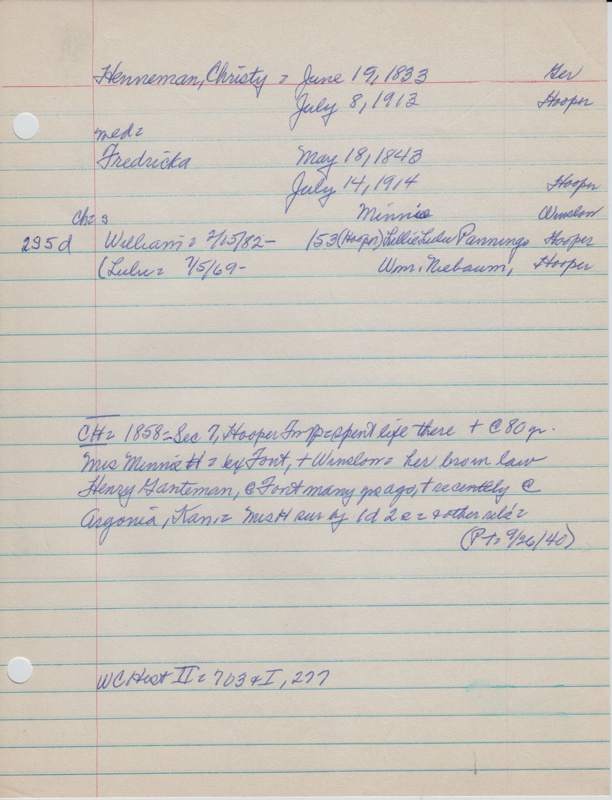 Henneman, Christy = June 19, 1833 Ger
July 8, 1913 Hooper
med=
Fredricka May 18, 1843
July 14, 1914 Hooper
Ch= s Minnie Winslow
295d William = 2/15/82- 153 (Hooper) Lillie Lulu Panning Hooper
(Lulu = 7/5/69- Wm. Niebaum, Hooper
CH = 1858 = Sec 7, Hooper = spent life there + @ 80 yr.
Mrs Minnie H = ex Font, + Winslow = her bro in law
Henry Ganteman, @ Font many yrs ago, + recently @
Argonia, Kan, = Mrs H sur by 1d 2 = + other rels =
(P T = 9/26/40)
WC Hist II = 703 + I, 277